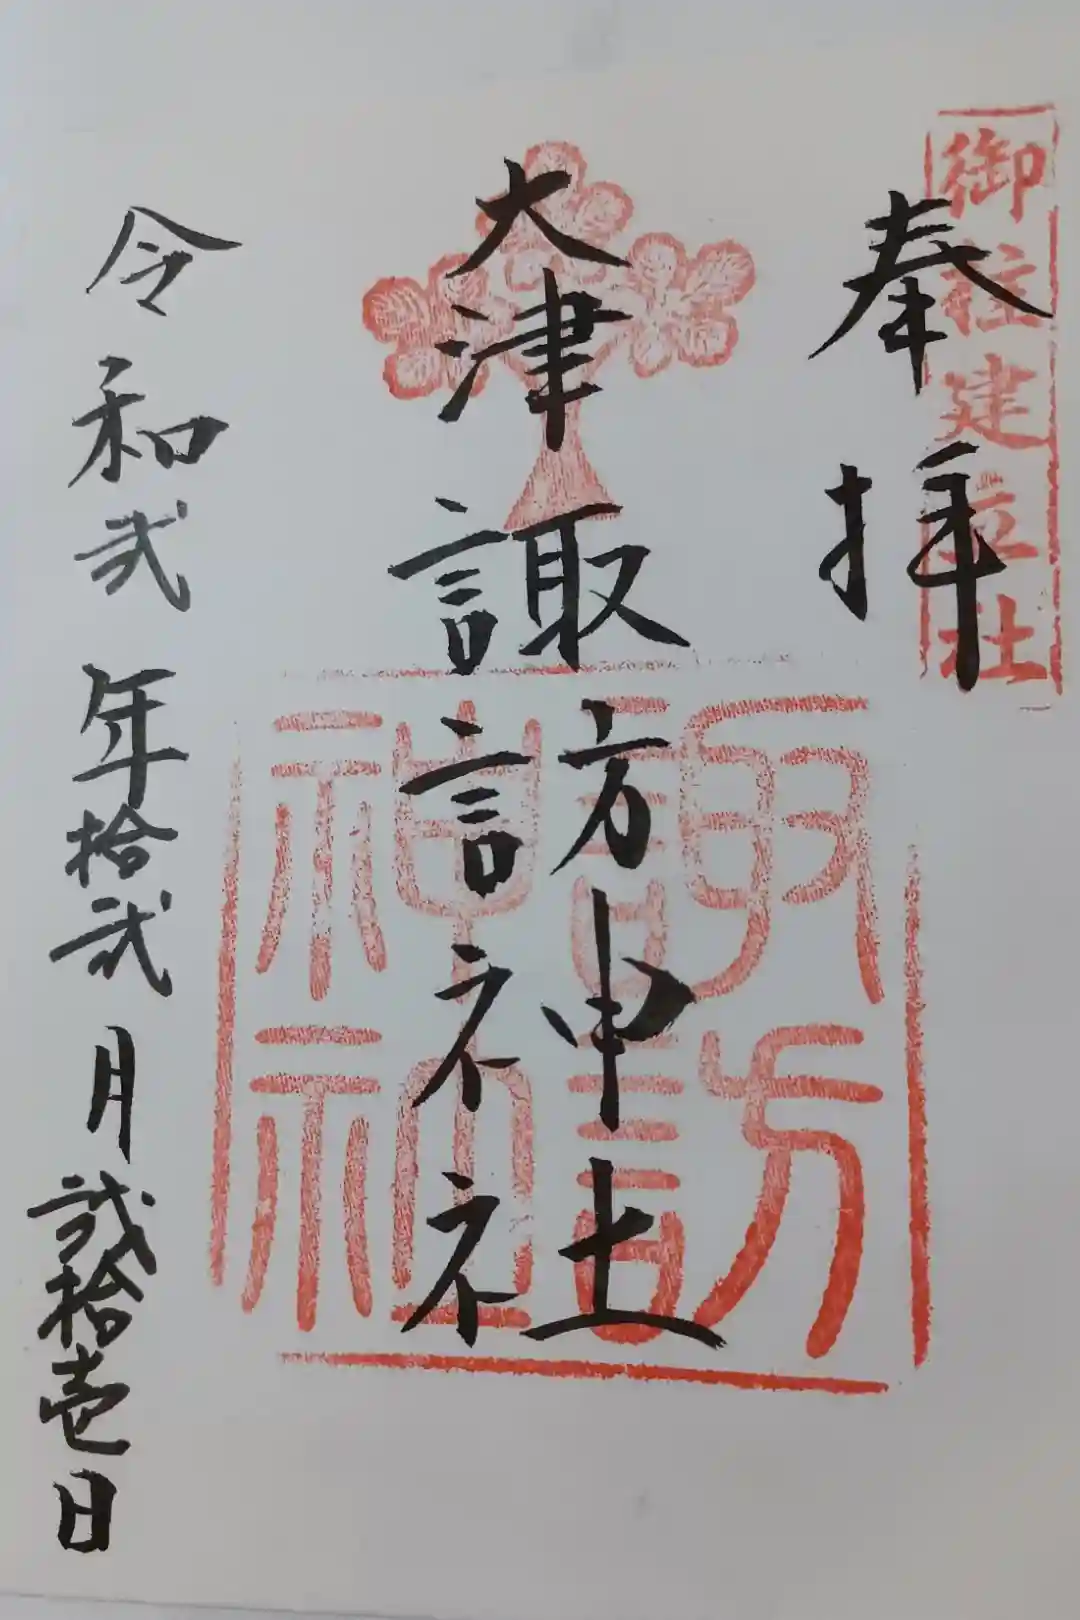 御柱建立社
奉拝
大津諏訪神社
諏訪
神社
令和弐年拾弐月弐拾壱日